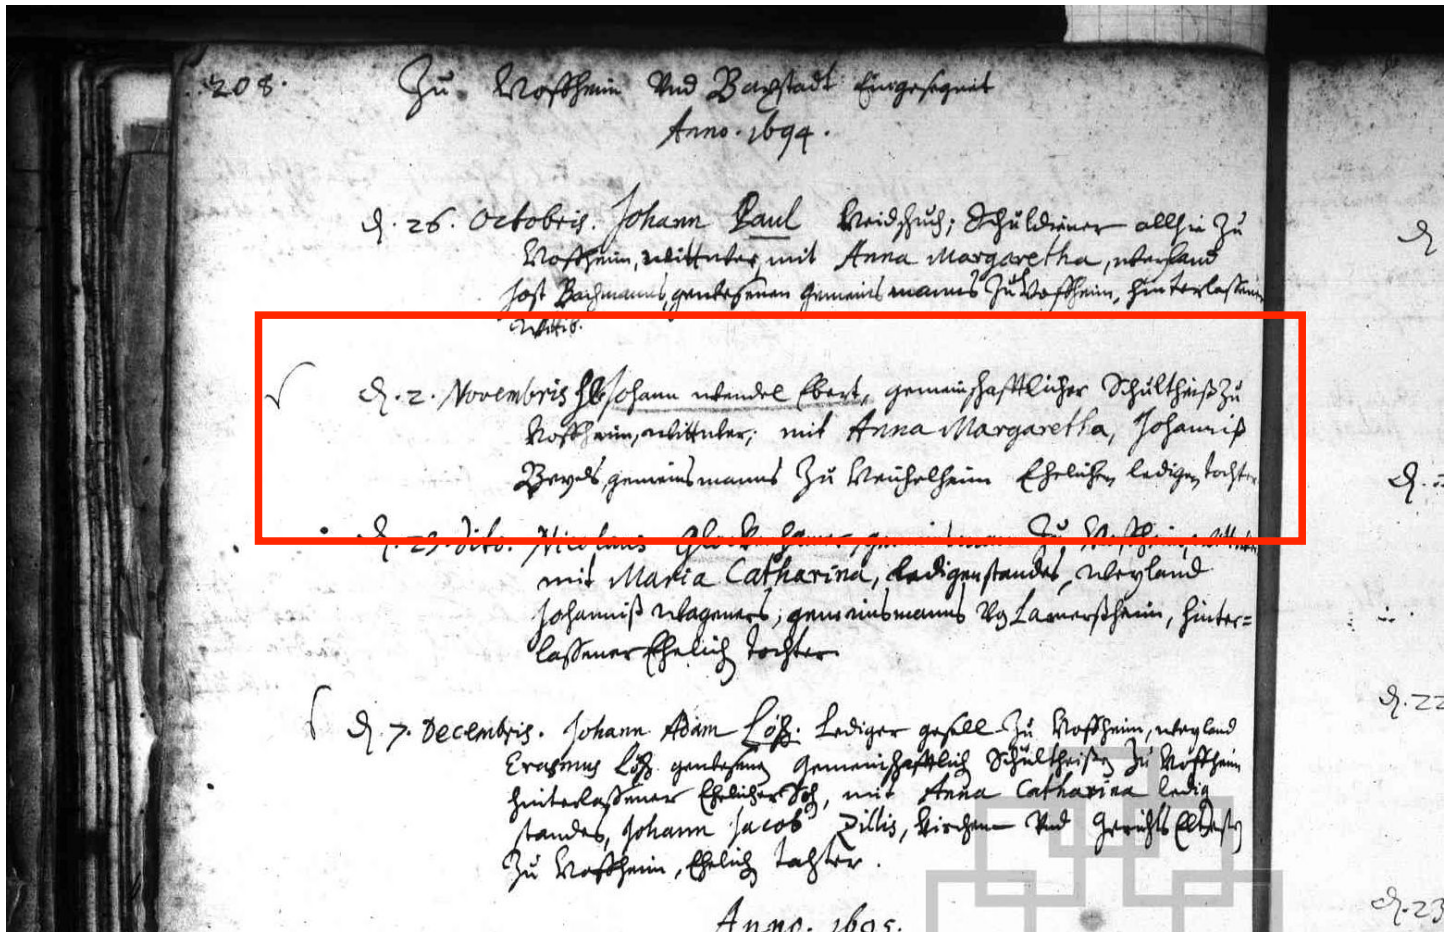 208.
Zu Roxheim Vnd Bacstadt Eingesegnet
Anno. 1694.
d. 26. Octobris. Johann Paul Schuldiener allhie Zu
Roxheim, wittwer, mit Anna Margaretha, weyland
Jost Bachmanns gewesenen Gemeinsmanns Zu Roxheim, hinterlassene
Wittib.
d. 2. Novembris H. Johann Wendel Ebert, gemeinschafftlicher Schultheiß Zu
Roxheim, wittwer; mit Anna Margaretha, Johanniß
gemeinsmanns Zu Ehelichen ledigen tochter
d. 23. dito. Nicolaus gemeinsmann Zu Roxheim, wittwer
mit Maria Catharina, Ledigenstandes, weyland
Johanniß Wageners, gemeinsmanns hinter=
laßener Ehelich tochter
d. 7. Decembris. Johann Adam Lediger gesell Zu Roxheim, weyland
Erasmus gewesenen Gemeinschafftlich Schultheißen Zu Roxheim
hinterlaßener Ehelicher Sohn, mit Anna Catharina ledig
standes, Johann Jacob Dillis, Kirchen Vnd Gerichts Eltesten
Zu Roxheim, Ehelich tochter.
Anno. 1695.
d
d. 22
d. 23